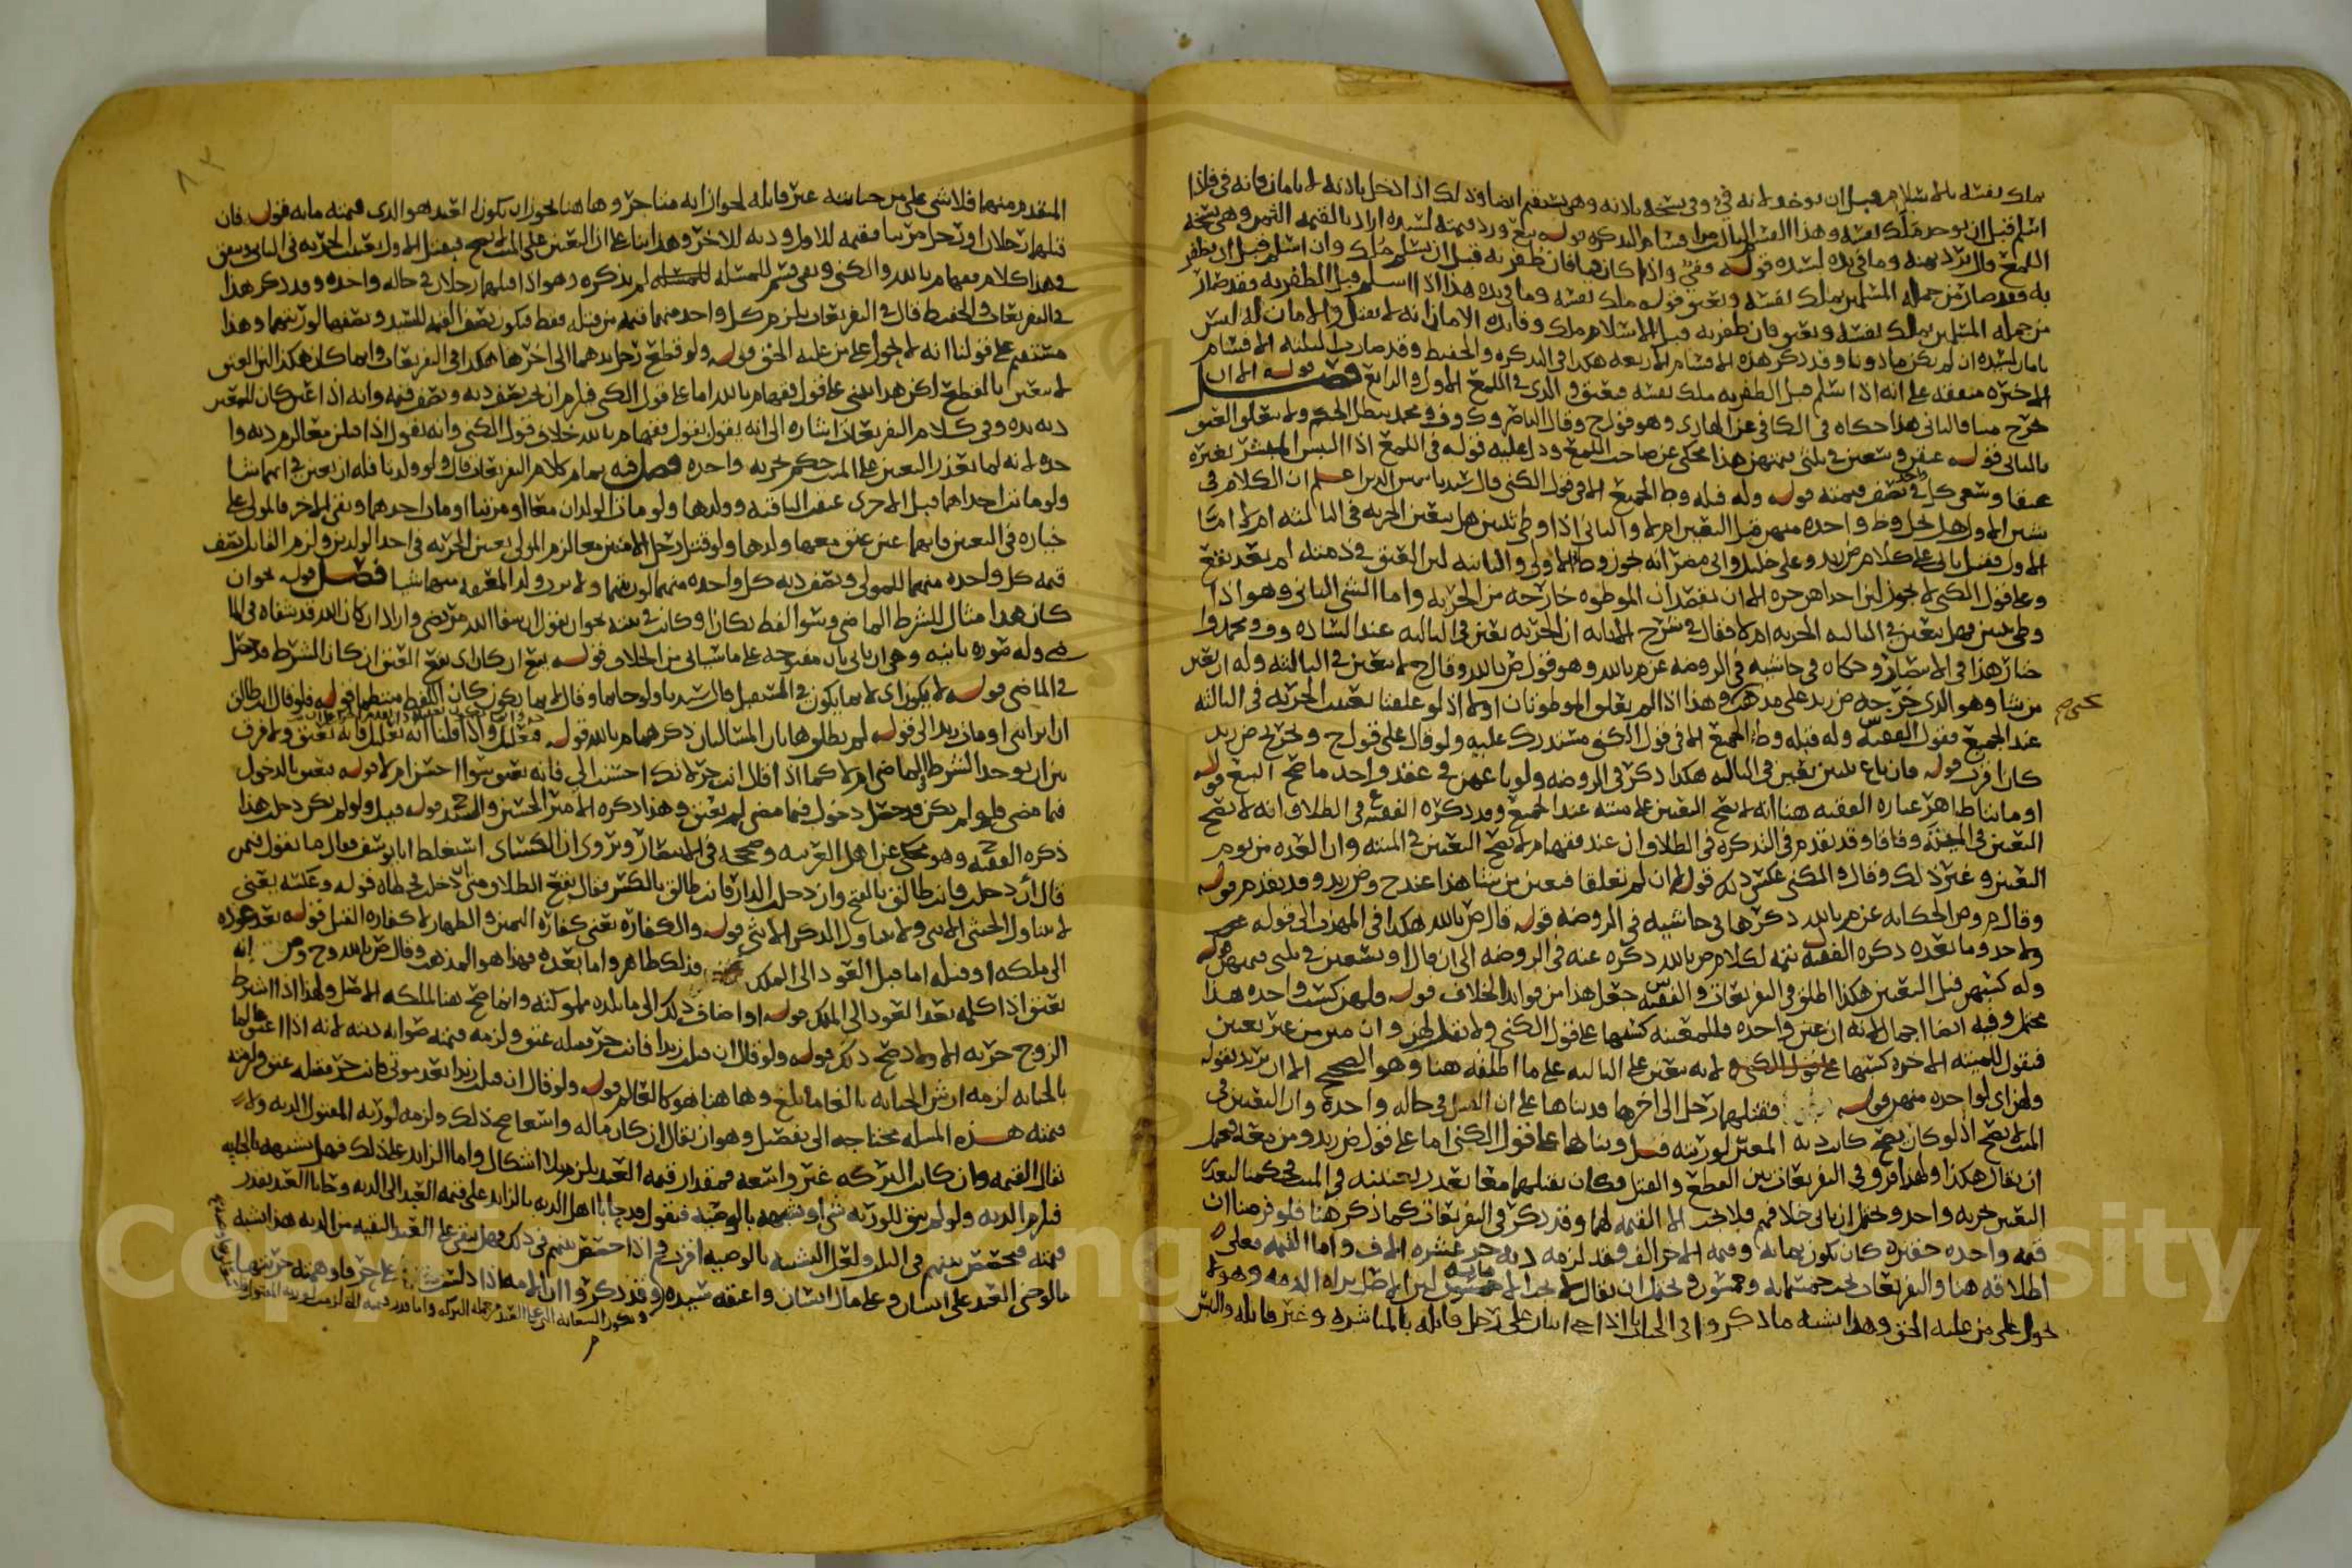 يملك نفسه بالاسلام قبل ان يوخذ لانه في وفي نسخه بلا انه وهي تستقيم ايضا وذلك اذا دخل باذنه لا بامان فانه في فاذا
اسلم قبل ان يوخذ ملك نفسه وهذا القسم الثالث من اقسام التذكره قوله بيع ورد قيمته لسيده اراد بالقيمه الثمن وهي نسخه
اللمع قال يرد ثمنه وما في يده لسيده قوله وفي واذا كان فان ظفر به قبل ان يسلم ملك وان اسلم قبل ان يظفر
به فقد صار من جمله المسلمين يملك نفسه ويعتق قوله ملك نفسه وما في يده هذا اذا اسلم قبل الظفر به فقد صار
من جمله المسلمين يملك نفسه ويعتق فان ظفر به قبل الاسلام ملك وفائده الامان انه لا يقتل والامان له ليس
بامان لسيده ان لم يكن ماذونا وقد ذكر هذه الاقسام الاربعه هكذا في التذكره والحفيظ وقد صارت الثلثه الاقسام
الاخيره متفقه على انه اذا اسلم قبل الظفر به ملك نفسه فيعتق والذي في اللمع الاول والرابع فصل قوله الاول
خرج ميتا فالثاني هذا حكاه في الكافي عن الهادي وهو قول ح وقال الناصر وك وف ومحمد يبطل الحكم ولا يتعلق العتق
بالثاني قوله عتقن وسعين في ثلثي قيمتهن هذا محكي عن صاحب اللمع ودل عليه قوله في اللمع اذا التبس بغيره
عتقا وسعى كل واحد في نصف قيمته قوله وله قبله وطء الجميع الا في قول الكني قال سيدنا شمس الدين اعلم ان الكلام في
شيئين الاول هل يحل وطء واحده منهن قبل التعيين ام لا والثاني اذا وطي ثنتين هل يتعين الحريه في الثالثه ام لا اما
الاول فقيل ياتي على كلام ض زيد وعلى خليل وابي مضر انه يجوز وطء الاولى والثانيه لان العتق في ذمته لم يقع بعد
وعلى قول الكني لا يجوز لان احداهن حره الا ان يقصد ان الموطوه خارجه من الحريه واما الشي الثاني وهو اذا
وطي ثنتين فهل يتعين في الثالثه الحريه ام لا فقال في شرح الابانه ان الحريه تعين في الثالثه عند الساده وف ومحمد وا
ختار هذا في الانتصار وحكاه في حاشيه في الروضه عن م بالله وهو قول ض بالله وقال ح لا يتعين في الثالثه وله ان يعين
من شا وهو الذي خرجه ض زيد على مذهب وهذا اذا لم يعلق الموطوتان اولا اذ لو علقتا تعينت الحريه في الثالثه
عند الجميع فقول الفقيه س وله قبله وطء الجميع الا في قول الكني مستدرك عليه ولو قال على قول ح وتخريج ض زيد
كان اقرب قوله فان باع ثنتين تعين في الثالثه هكذا ذكر في الروضه ولو باعهن في عقد واحد ما صح البيع قوله
او ماتتا ظاهر عباره الفقيه هنا انه لا يصح التعيين على ميته عند الجميع وقد ذكره الفقيه في الطلاق انه لا يصح
التعيين في الميته وفاقا وقد تقدم في التذكره في الطلاق ان عند فقهام لا يصح التعيين في الميته وان العده من يوم
التعيين وغير ذلك وقال والكني عكس ذلك قوله ان لم تعلقا فيعين من شا هذا عند ح وض زيد وقد تقدم قوله
وقال م وص الحكايه عن م بالله ذكرها في حاشيه في الروضه قوله قال ض بالله هكذا في المهذب الى قوله
ولا حد وما بعده ذكره الفقيه تتمه لكلام ض بالله ذكره عنه في الروضه الى ان قال او يسعين في ثلثي قيمتهن قوله
وله كسبهن قبل التعيين هكذا اطلق في التفريعات والفقيه س جعل هذا من فوائد الخلاف قوله ولهن كسب واحده هذا
محتمل وفيه ايضا اجمال لانه ان عين واحده فللمعينه كسبها على قول الكني ولا يقال لهن وان متن من غير تعيين
فيقول للميته الاخره كسبها على قول الكني ولانه يتعين على الثالثه على ما اطلقه هنا وهو الصحيح الا ان يريد بقوله
ولهن اي لواحده منهن قوله فقتلهما رجل الى اخرها قد بناها على ان القتل في حاله واحده وان التعيين في
الميت لا يصح اذ لو كان يصح كان ديه المعين لورثته قيل وبناها على قول الكني اما على قول ض زيد ومن معه فيحتمل
ان يقال هكذا ولهذا فرق في التفريعات بين القطع والقتل فكان بقتلهما معا تعذر
التعيين حريه واحد ويحتمل ان ياتي خلافهم فلا يجب الا القيمه لهما وقد ذكر في التفريعات كما ذكر هنا فلو فرضنا ان
قيمه واحده حقيره كان يكون بمائه وقيمه الاخر الف فقد لزمه ديه حر عشره الاف واما القيمه فعلى
اطلاقه هنا والتفريعات يجب خمسمائه وخمسون ويحتمل ان يقال لا يجب الا مائه لان الاصل براه الذمه وهو لا
يحول على من عليه الحق وهذا يشبه ما ذكروا في الجنايات اذا جا انسان على رجل قاتله بالمباشره وغير قاتله والتبس
المتقدم منهما فلا شي على من جنايته غير قاتله لجواز انه متاخر وها هنا يجوز ان يكون العبد هو الذي قيمته مايه قوله فان
قتلهما رجلان او رجل مرتبا فقيمه للاول وديه للاخر وهذا بنا على ان التعيين على الميت لا يصح فبقتل الاول تعينت الحريه في الثاني ويستقيم
في هذا كلام فقهام بالله والكني وبقي قسم للمسئله لم يذكره وهو اذا قتلهما رجلان في حاله واحده وقد ذكر هذا
في التفريعات والحفيظ قال في التفريعات يلزم كل واحد منهما قيمه من قتله فقط فيكون نصف القيمه للسيد ونصفها لورثتهما وهذا
مستقيم على قولنا انه لا يحول على من عليه الحق قوله ولو قطع رجل يدهما الى اخرها هكذا في التفريعات وانما كان هكذا لان العتق
لا يتعين بالقطع لكن هذا يبنى على قول فقهام بالله اما على قول الكني فيلزم ان يجب نصف ديه ونصف قيمه وانه اذا عين كان للمعين
ديه يده وفي كلام التفريعات اشاره الى انه يقول بقول فقهام بالله خلاف قول الكني وانه يقول اذا قتلن معا لزم ديه وا
حده لانه لما تعذر التعيين على الميت حكم بحريه واحده فصل فيه تمام كلام التفريعات قال ولو ولدتا فله ان يعين في ايهما شا
ولو ماتت احداهما قبل الاخرى عتقت الباقيه وولدها ولو مات الولدان معا او مرتبا او مات احدهما وبقي الاخر فالمولى على
خياره في التعيين فايهما عين عتق معها ولدها ولو قتل رجل الامتين معا لزم المولى تعيين الحريه في احد الولدين ولزم القاتل نصف
قيمه كل واحده منهما للمولى ونصف ديه كل واحده منهما لورثتهما ولا يرد ولد المعتقه منهما شيا فصل قوله نحو ان
كان هذا مثال للشرط الماضي وسوا لفظ بكان او كانت في نيته نحو ان يقول ان شفا الله مريضي واراد ان كان الله قد شفاه في الما
ضي وله صوره ثانيه وهي ان ياتي بان مفتوحه على ما سياتي من الخلاف قوله يقع ان كان اي يقع العتق ان كان الشرط قد حصل
في الماضي قوله لا يكون اي لا بما يكون في المستقبل قال سيدنا ولو جا بما وقال لا بما يكون كان اللفظ منتظما قوله فلو قال انت طالق
ان ابراتني او مات زيد الى قوله لم يطلق هاتان المسالتان ذكرهما م بالله قوله فتعليل واذا قلنا انه تعليل فانه تعتق ولا فرق
بين ان يوجد الشرط الماضي ام لا كما اذا قال انت حر لانك احسنت الي فانه يعتق سوا احسن ام لا قوله فيعتق بالدخول
فيما مضى فلو لم يكن قد حصل دخول فيما مضى لم يعتق وهذا ذكره الامير الحسين والسيد ح قوله قيل ولو لم يكن دخل هذا
ذكره الفقيه ح وهو محكي عن اهل العربيه وصححه في الانتصار وتروى ان الكسائي استغلط ابا يوسف فقال ما تقول فيمن
قال أن دخلت فانت طالق بالفتح وان دخلت الدار فانت طالق بالكسر فقال يقع الطلاق متى دخلت فخطاه قوله وعكسه يعني
لا يتناول الخنثى الانثى ولا يتناول الذكر الانثى قوله والكفاره يعني كفاره اليمين والظهار لا كفاره القتل قوله بعد عوده
الى ملكه او قبله اما قبل العود الى الملك فذلك ظاهر واما بعده فهذا هو المذهب وقال ض بالله وح وص انه
يعتق اذا كلمه بعد العود الى الملك قوله او اضاف ذلك الى ما تلده مملوكته وانما صح هنا لملكه الاصل ولهذا اذا اشرط
الزوج حريه الاولاد صح ذلك قوله ولو قال ان قتلت زيدا فانت حر فقتله عتق ولزمه قيمته صوابه ديته لانه اذا اعتق
بالجنايه لزمه ارش الجنايه بالغا ما بلغ وها هنا هو كالعالم قوله ولو قال ان قتلت زيدا بعد موتي فانت حر فقتله عتق ولزمه
قيمته هذه المساله محتاجه الى تفصيل وهو ان يقال ان كان ماله واسعا صح ذلك ولزمه لورثه المقتول الديه ولا
يقال القيمه وان كانت التركه غير واسعه فمقدار قيمه العبد يلزم بلا اشكال واما الزايد على ذلك فهل نشبهه بالجنايه
فيلزم الديه ولو لم يبق للورثه شي او نشبهه بالوصيه فنقول قد حابا اهل الديه بالزايد على قيمه العبد الى الديه وحابا العبد بقدر
قيمته فيحصص بينهم في الثلث ولعل التشبيه بالوصيه اقرب ثم اذا حصص بينهم في ذلك فهل يبقى على العبد البقيه من الديه هذا يشبه
ما لو جنى العبد على انسان وعلى مال انسان واعتقه سيده وقد ذكروا ان الامه اذا دلست على حر فاوهمته حريتها